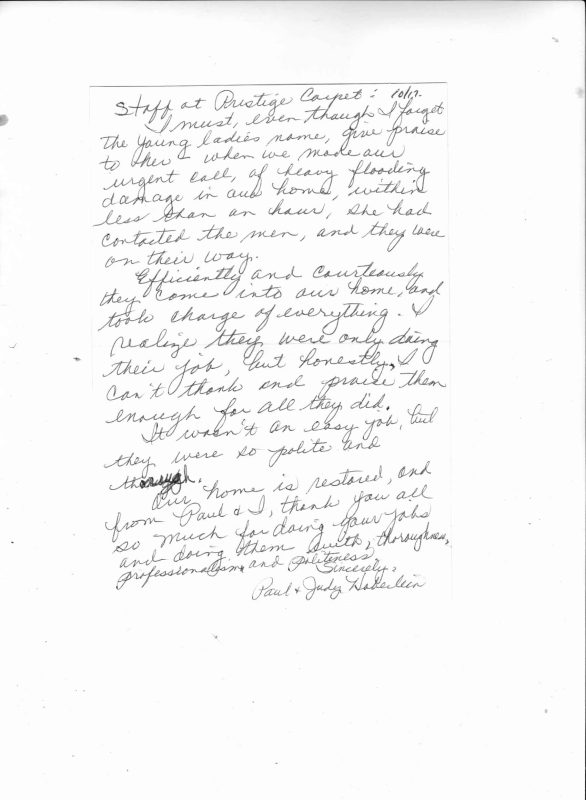 Staff at Prestige Carpet: 10/17.
I must, even though I forget
the young ladies name, give praise
to her - when we made our
urgent call, of heavy flooding
damage in our home, within
less than an hour, she had
contacted the men, and they were
on their way.
Efficiently and courteously
they come into our home, and
took charge of everything. I
realize they were only doing
their job, but honestly, I
can't thank and praise them
enough for all they did.
It wasn't an easy job, but
they were so polite and
thorough.
Our home is restored, and
from Paul & I, thank you all
so much for doing your jobs
and doing them with, thoroughness,
professionalism and politeness.
Sincerely,
Paul & Judy Haberlein